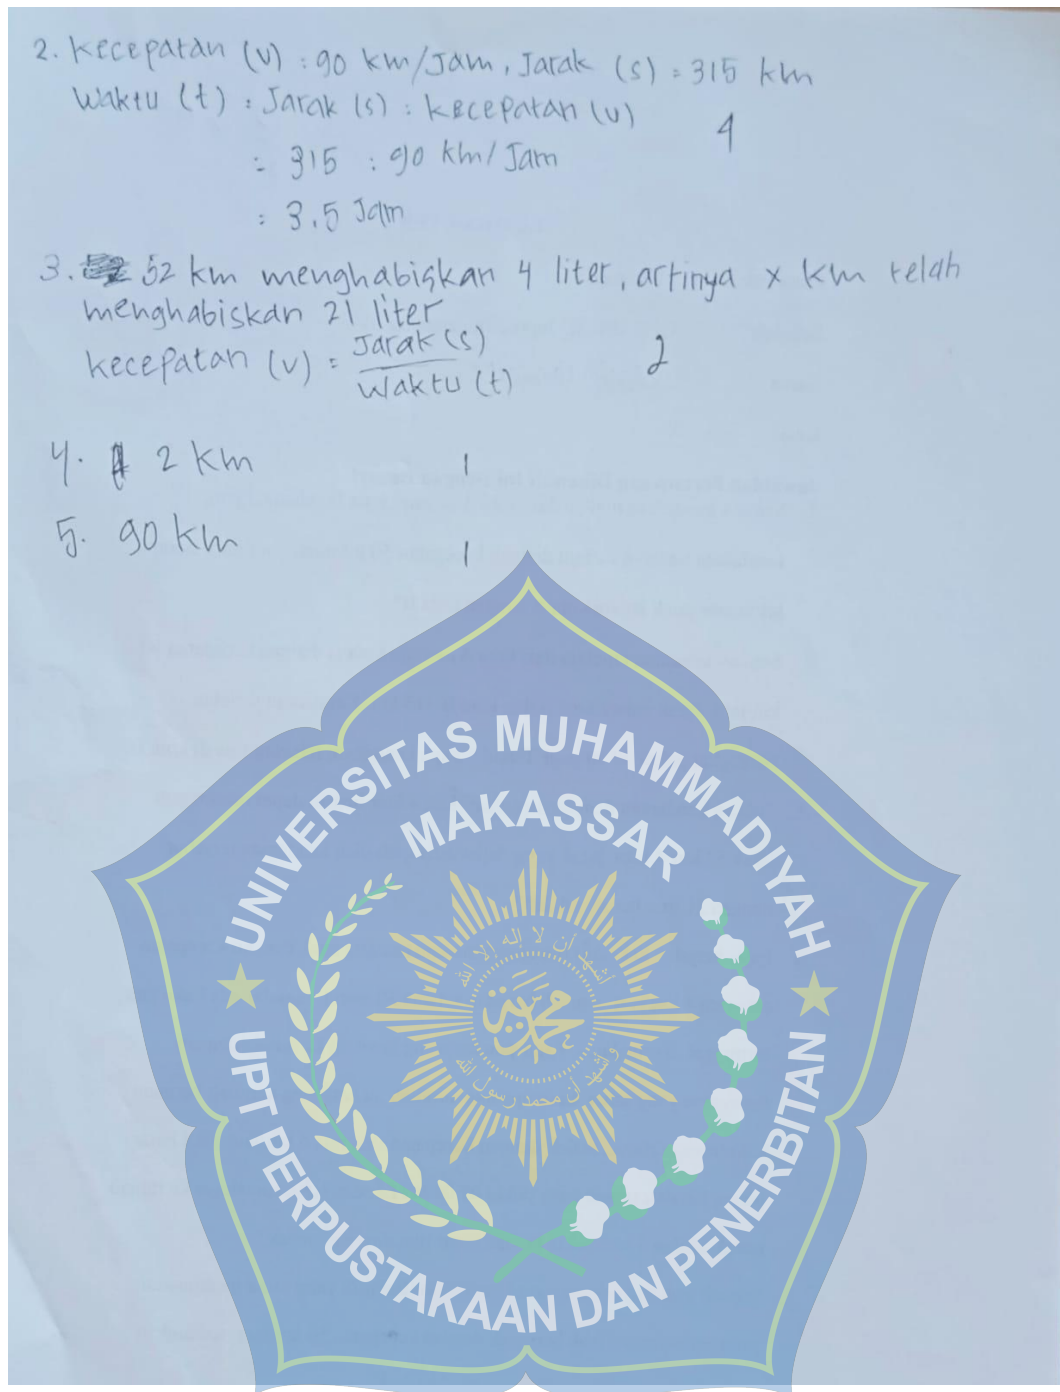 2. Kecepatan (v) : 90 km/Jam, Jarak (s) = 315 km
Waktu (t) : Jarak (s) : kecepatan (v)
4
= 315 : 90 km/Jam
= 3.5 Jam
3. 52 km menghabiskan 4 liter, artinya x km telah
menghabiskan 21 liter
kecepatan (v) = Jarak (s)
Waktu (t)
2
4. 2 km
1
5. 90 km
1
UNIVERSITAS MUHAMMADIYAH
MAKASSAR
أشهد أن لا إله إلا الله
محمدية
وأشهد أن محمد رسول الله
UPT PERPUSTAKAAN DAN PENERBITAN